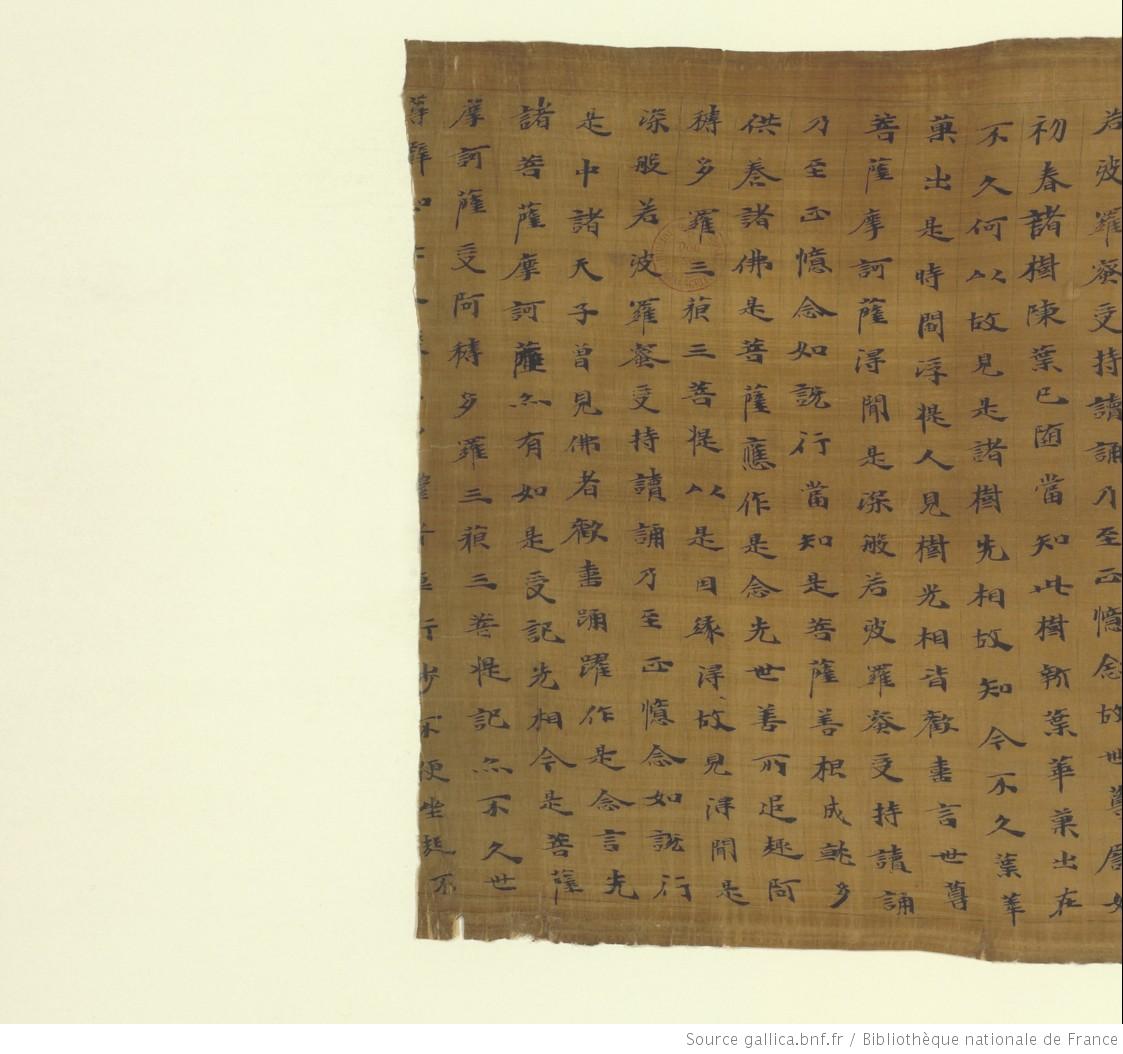 若波羅蜜受持讀誦乃至正憶念故世尊譬如
初春諸樹陳葉已随當知此樹新葉華菓出在
不久何以故見是諸樹先相故知今不久葉華
菓出是時閻浮提人見樹光相皆歡憙言世尊
菩薩摩訶薩淂聞是深般若波羅蜜受持讀誦
乃至正憶念如說行當知是菩薩善根成就多
供養諸佛是菩薩應作是念先世善所追趣阿
耨多羅三藐三菩提以是因緣淂故見淂聞是
深般若波羅蜜受持讀誦乃至正憶念如說行
是中諸天子曽見佛者歡憙踊躍作是念言先
諸菩薩摩訶薩亦有如是受記先相今是菩薩
摩訶薩受阿耨多羅三藐三菩提記亦不久世
尊 便坐起不
Source gallica.bnf.fr / Bibliothèque nationale de France